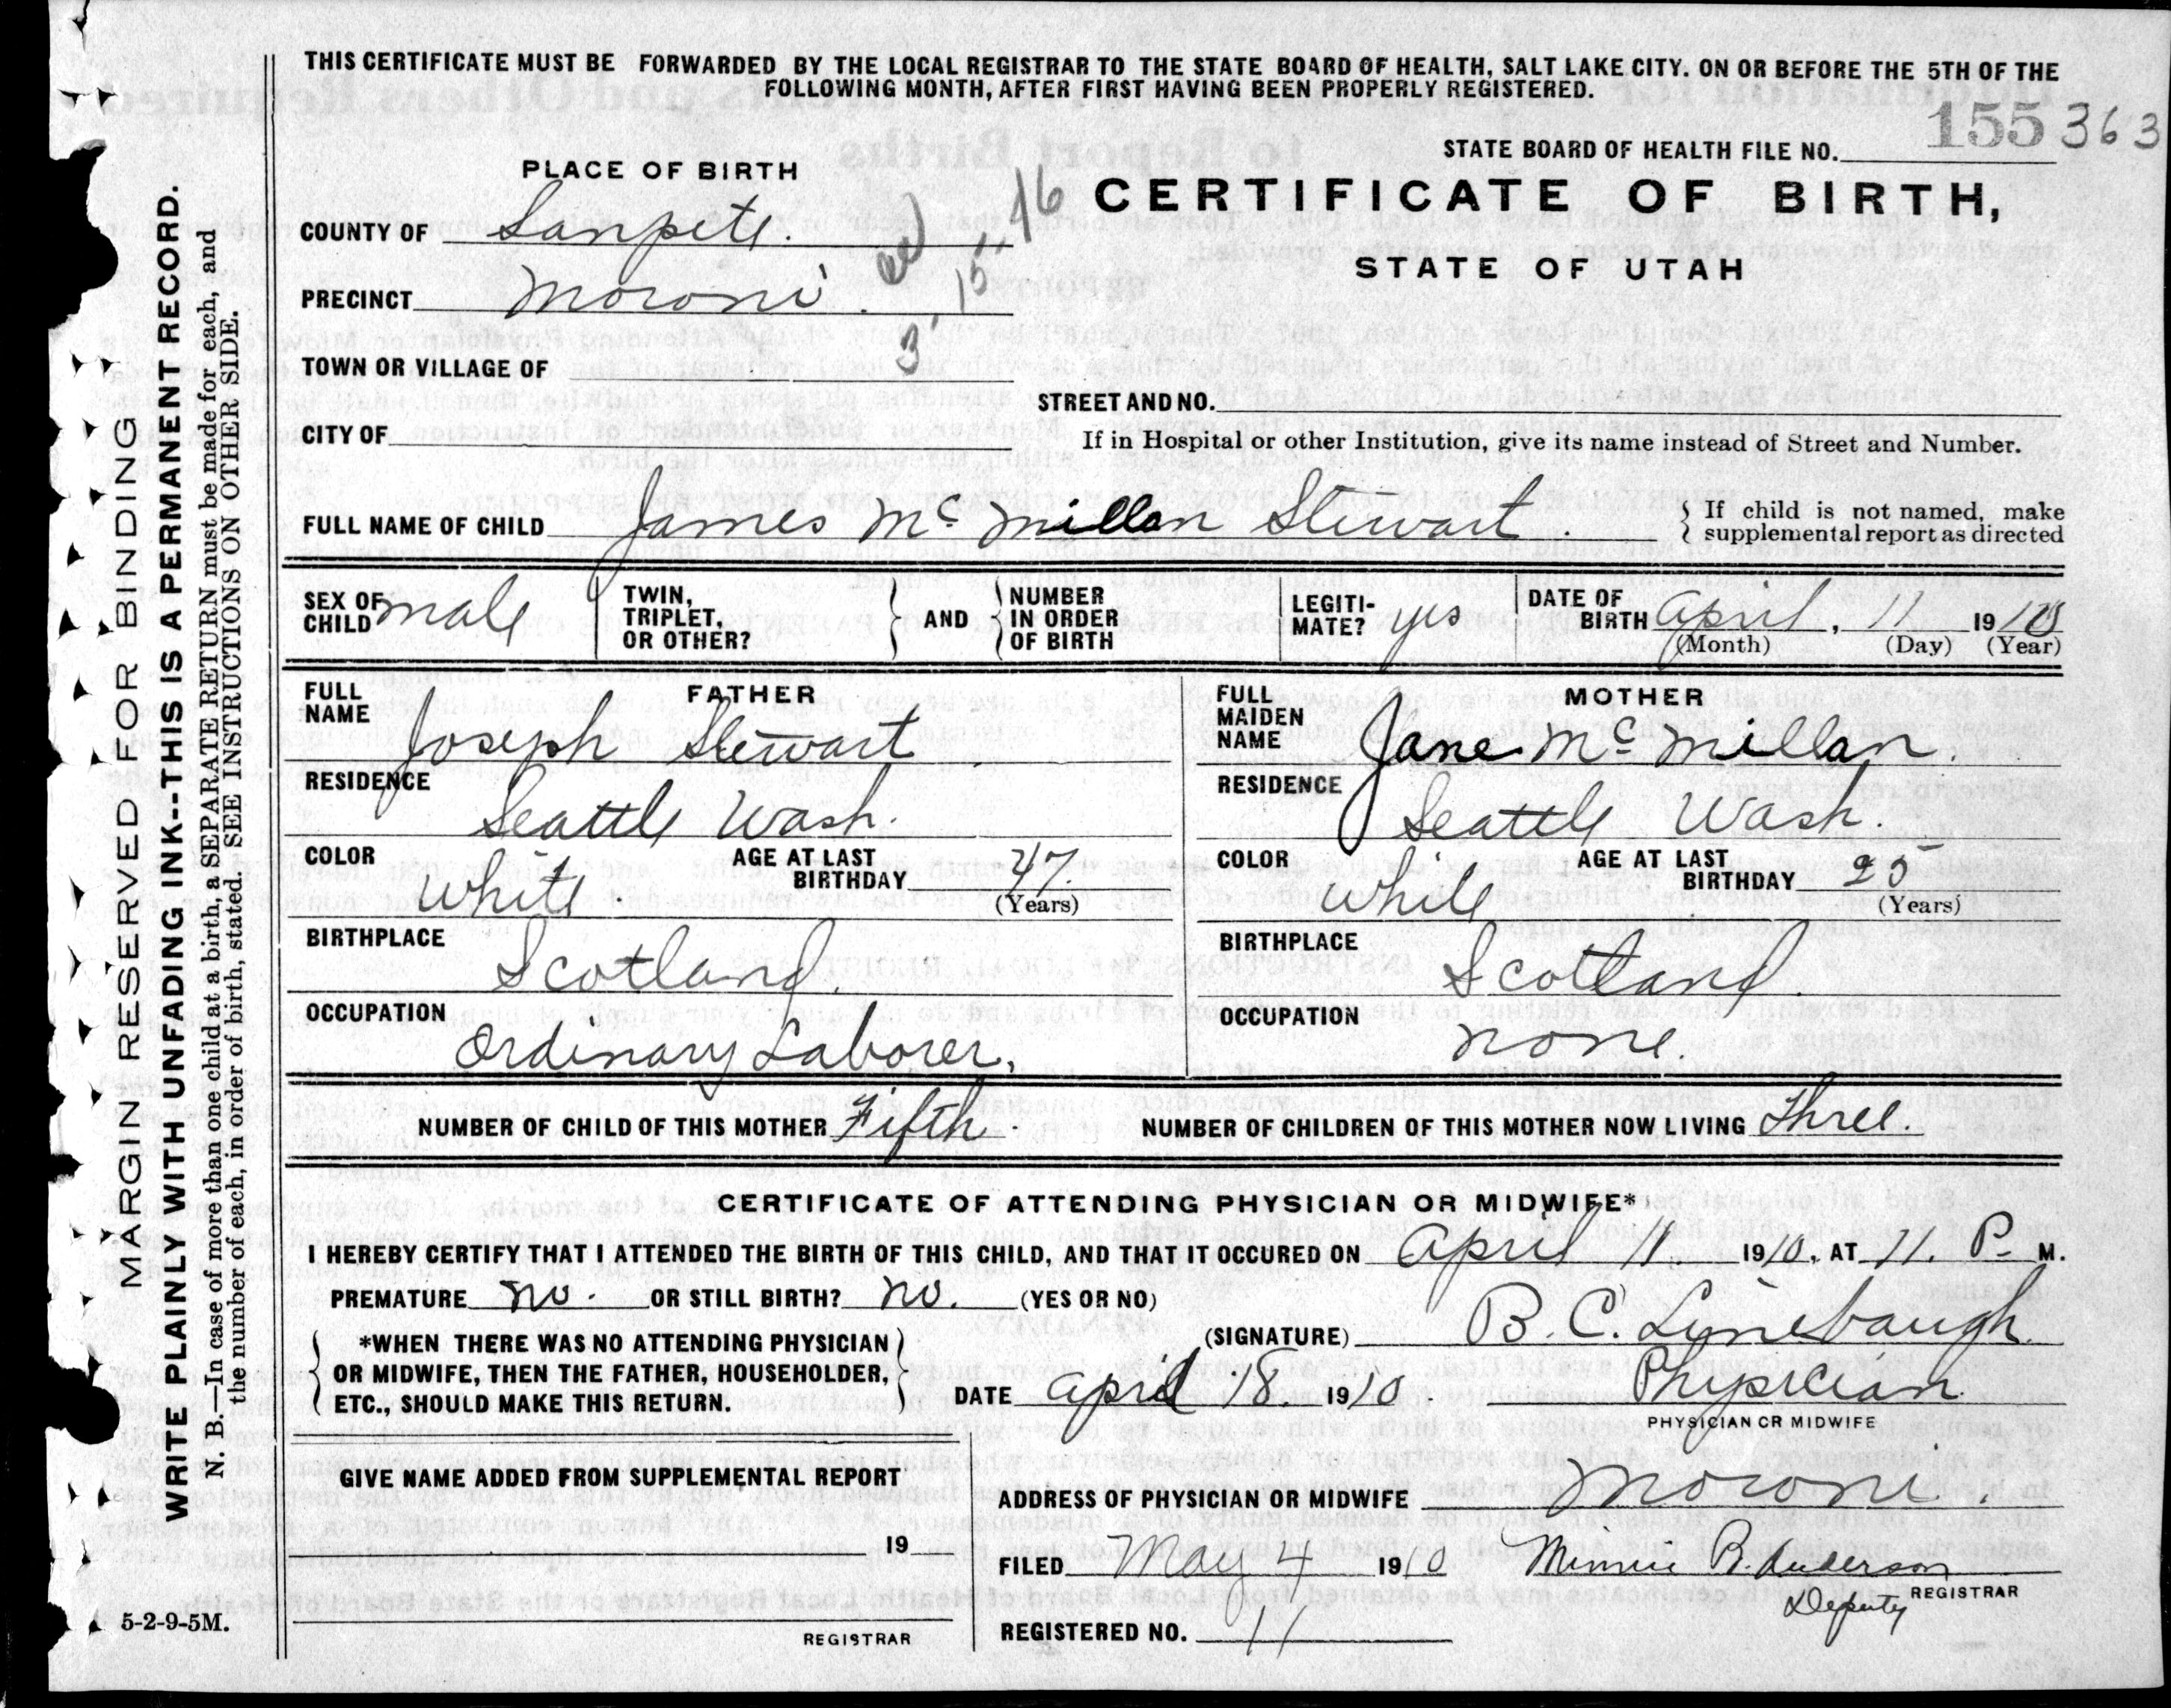 THIS CERTIFICATE MUST BE FORWARDED BY THE LOCAL REGISTRAR TO THE STATE BOARD OF HEALTH, SALT LAKE CITY. ON OR BEFORE THE 5TH OF THE
FOLLOWING MONTH, AFTER FIRST HAVING BEEN PROPERLY REGISTERED.
STATE BOARD OF HEALTH FILE NO. 155 363
PLACE OF BIRTH
16
CERTIFICATE OF BIRTH,
STATE OF UTAH
COUNTY OF Sanpete.
PRECINCT Moroni. 15
TOWN OR VILLAGE OF 3
STREET AND NO.
CITY OF
If in Hospital or other Institution, give its name instead of Street and Number.
FULL NAME OF CHILD James Mc Millan Stewart.
If child is not named, make
supplemental report as directed
SEX OF CHILD male
TWIN, TRIPLET, OR OTHER?
AND
NUMBER IN ORDER OF BIRTH
LEGITI-MATE? yes
DATE OF BIRTH April, 11 1910
(Month) (Day) (Year)
FATHER
FULL NAME Joseph Stewart
RESIDENCE
Seattle Wash.
COLOR White
AGE AT LAST BIRTHDAY 47.
(Years)
BIRTHPLACE
Scotland.
OCCUPATION
Ordinary Laborer.
MOTHER
FULL MAIDEN NAME Jane Mc Millan.
RESIDENCE
Seattle Wash.
COLOR White
AGE AT LAST BIRTHDAY 25
(Years)
BIRTHPLACE
Scotland.
OCCUPATION
none.
NUMBER OF CHILD OF THIS MOTHER Fifth. NUMBER OF CHILDREN OF THIS MOTHER NOW LIVING Three.
CERTIFICATE OF ATTENDING PHYSICIAN OR MIDWIFE*
I HEREBY CERTIFY THAT I ATTENDED THE BIRTH OF THIS CHILD, AND THAT IT OCCURED ON April 11 1910, AT 11. P. M.
PREMATURE no. OR STILL BIRTH? no. (YES OR NO)
*WHEN THERE WAS NO ATTENDING PHYSICIAN
OR MIDWIFE, THEN THE FATHER, HOUSEHOLDER,
ETC., SHOULD MAKE THIS RETURN.
(SIGNATURE) B. C. Linebaugh.
DATE April 18. 1910 Physician
PHYSICIAN OR MIDWIFE
GIVE NAME ADDED FROM SUPPLEMENTAL REPORT
19
REGISTRAR
ADDRESS OF PHYSICIAN OR MIDWIFE Moroni.
FILED May 4 1910 Minnie B. Anderson
REGISTRAR
Deputy
REGISTERED NO. 11
MARGIN RESERVED FOR BINDING
WRITE PLAINLY WITH UNFADING INK--THIS IS A PERMANENT RECORD.
N. B.—In case of more than one child at a birth, a SEPARATE RETURN must be made for each, and
the number of each, in order of birth, stated. SEE INSTRUCTIONS ON OTHER SIDE.
5-2-9-5M.